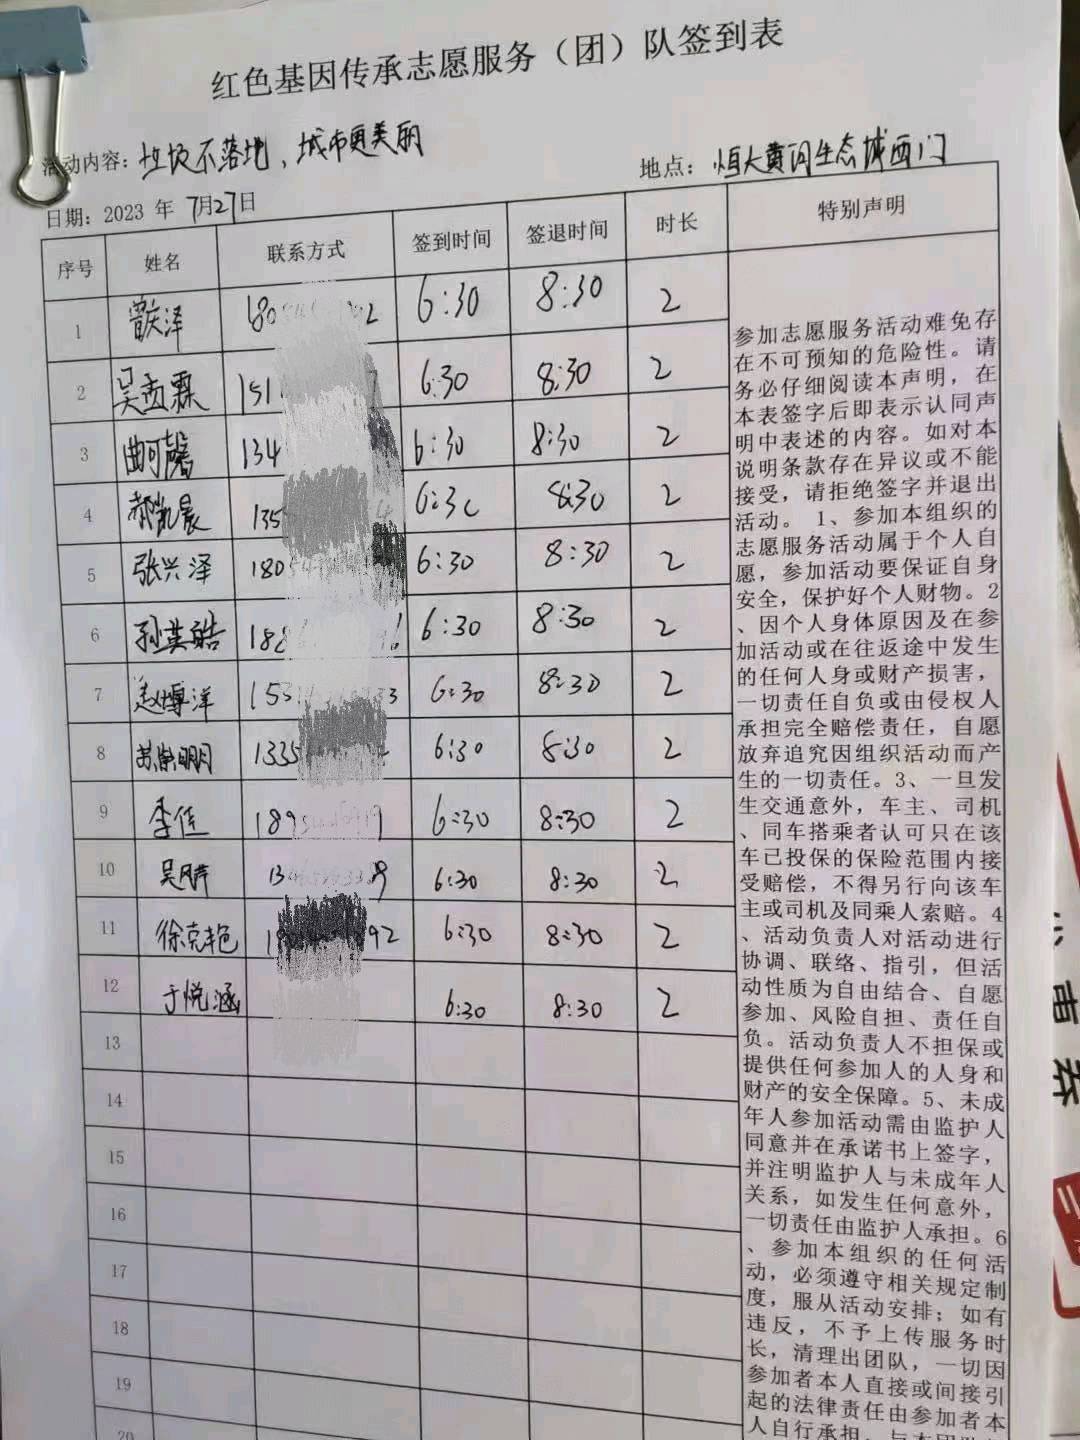 红色基因传承志愿服务（团）队签到表
活动内容：垃圾不落地、城市更美丽
地点：恒大黄河生态城西门
日期：2023 年 7月27日
序号 姓名 联系方式 签到时间 签退时间 时长 特别声明
1 6:30 8:30 2
2 吴孟霖 151 6:30 8:30 2
3 曲珂馨 134 6:30 8:30 2
4 郝凯晨 135 6:30 8:30 2
5 张兴泽 180 6:30 8:30 2
6 孙英皓 188 6:30 8:30 2
7 赵博洋 153 33 6:30 8:30 2
8 1335 6:30 8:30 2
9 李佳 189 6:30 8:30 2
10 6:30 8:30 2
11 徐克艳 92 6:30 8:30 2
12 于悦涵 6:30 8:30 2
13
14
15
16
17
18
19
20
参加志愿服务活动难免存
在不可预知的危险性。请
务必仔细阅读本声明，在
本表签字后即表示认同声
明中表述的内容。如对本
说明条款存在异议或不能
接受，请拒绝签字并退出
活动。1、参加本组织的
志愿服务活动属于个人自
愿，参加活动要保证自身
安全，保护好个人财物。2
、因个人身体原因及在参
加活动或在往返途中发生
的任何人身或财产损害，
一切责任自负或由侵权人
承担完全赔偿责任，自愿
放弃追究因组织活动而产
生的一切责任。3、一旦发
生交通意外，车主、司机
、同车搭乘者认可只在该
车已投保的保险范围内接
受赔偿，不得另行向该车
主或司机及同乘人索赔。4
、活动负责人对活动进行
协调、联络、指引，但活
动性质为自由结合、自愿
参加、风险自担、责任自
负。活动负责人不担保或
提供任何参加人的人身和
财产的安全保障。5、未成
年人参加活动需由监护人
同意并在承诺书上签字，
并注明监护人与未成年人
关系，如发生任何意外，
一切责任由监护人承担。6
、参加本组织的任何活
动，必须遵守相关规定制
度，服从活动安排；如有
违反，不予上传服务时
长，清理出团队，一切因
参加者本人直接或间接引
起的法律责任由参加者本
人自行承担。